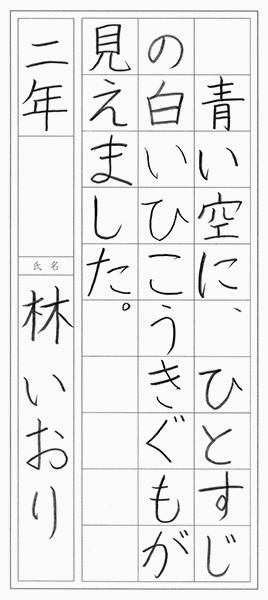 青い空に、ひとすじ
の白いひこうきぐもが
見えました。
二年
氏名
林いおり